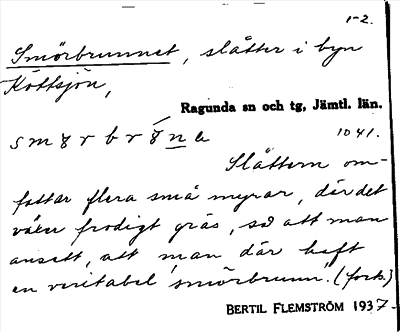 1-2.
Smörbrunnet, slåtter i byn
Köttsjön,
Ragunda sn och tg, Jämtl. län.
1041.
Slåttern om-
fattar flera små myrar, där det
växer frodigt gräs, så att man
ansett, att man där haft
en veritabel "smörbrunn". (forts.)
BERTIL FLEMSTRÖM 1937.